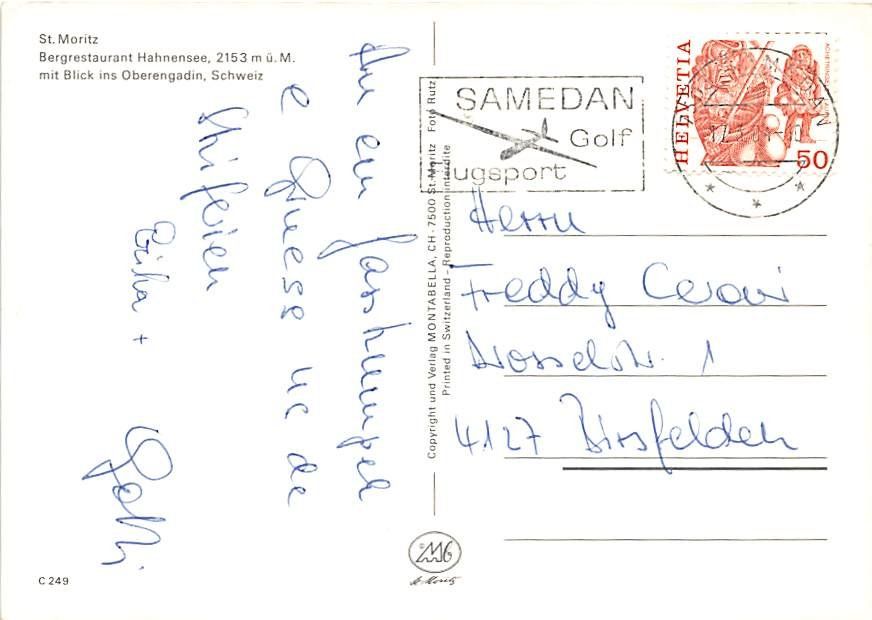 St. Moritz
Bergrestaurant Hahnensee, 2153 m ü. M.
mit Blick ins Oberengadin, Schweiz
e Gruess us de
Skiferien
Erika +
SAMEDAN
Golf
lugsport
HELVETIA
50
Herrn
Freddy
Drosselstr. 1
4127 Birsfelden
Copyright und Verlag MONTABELLA, CH - 7500 St. Moritz Foto Rutz
Printed in Switzerland - Reproduction interdite
St. Moritz
C 249